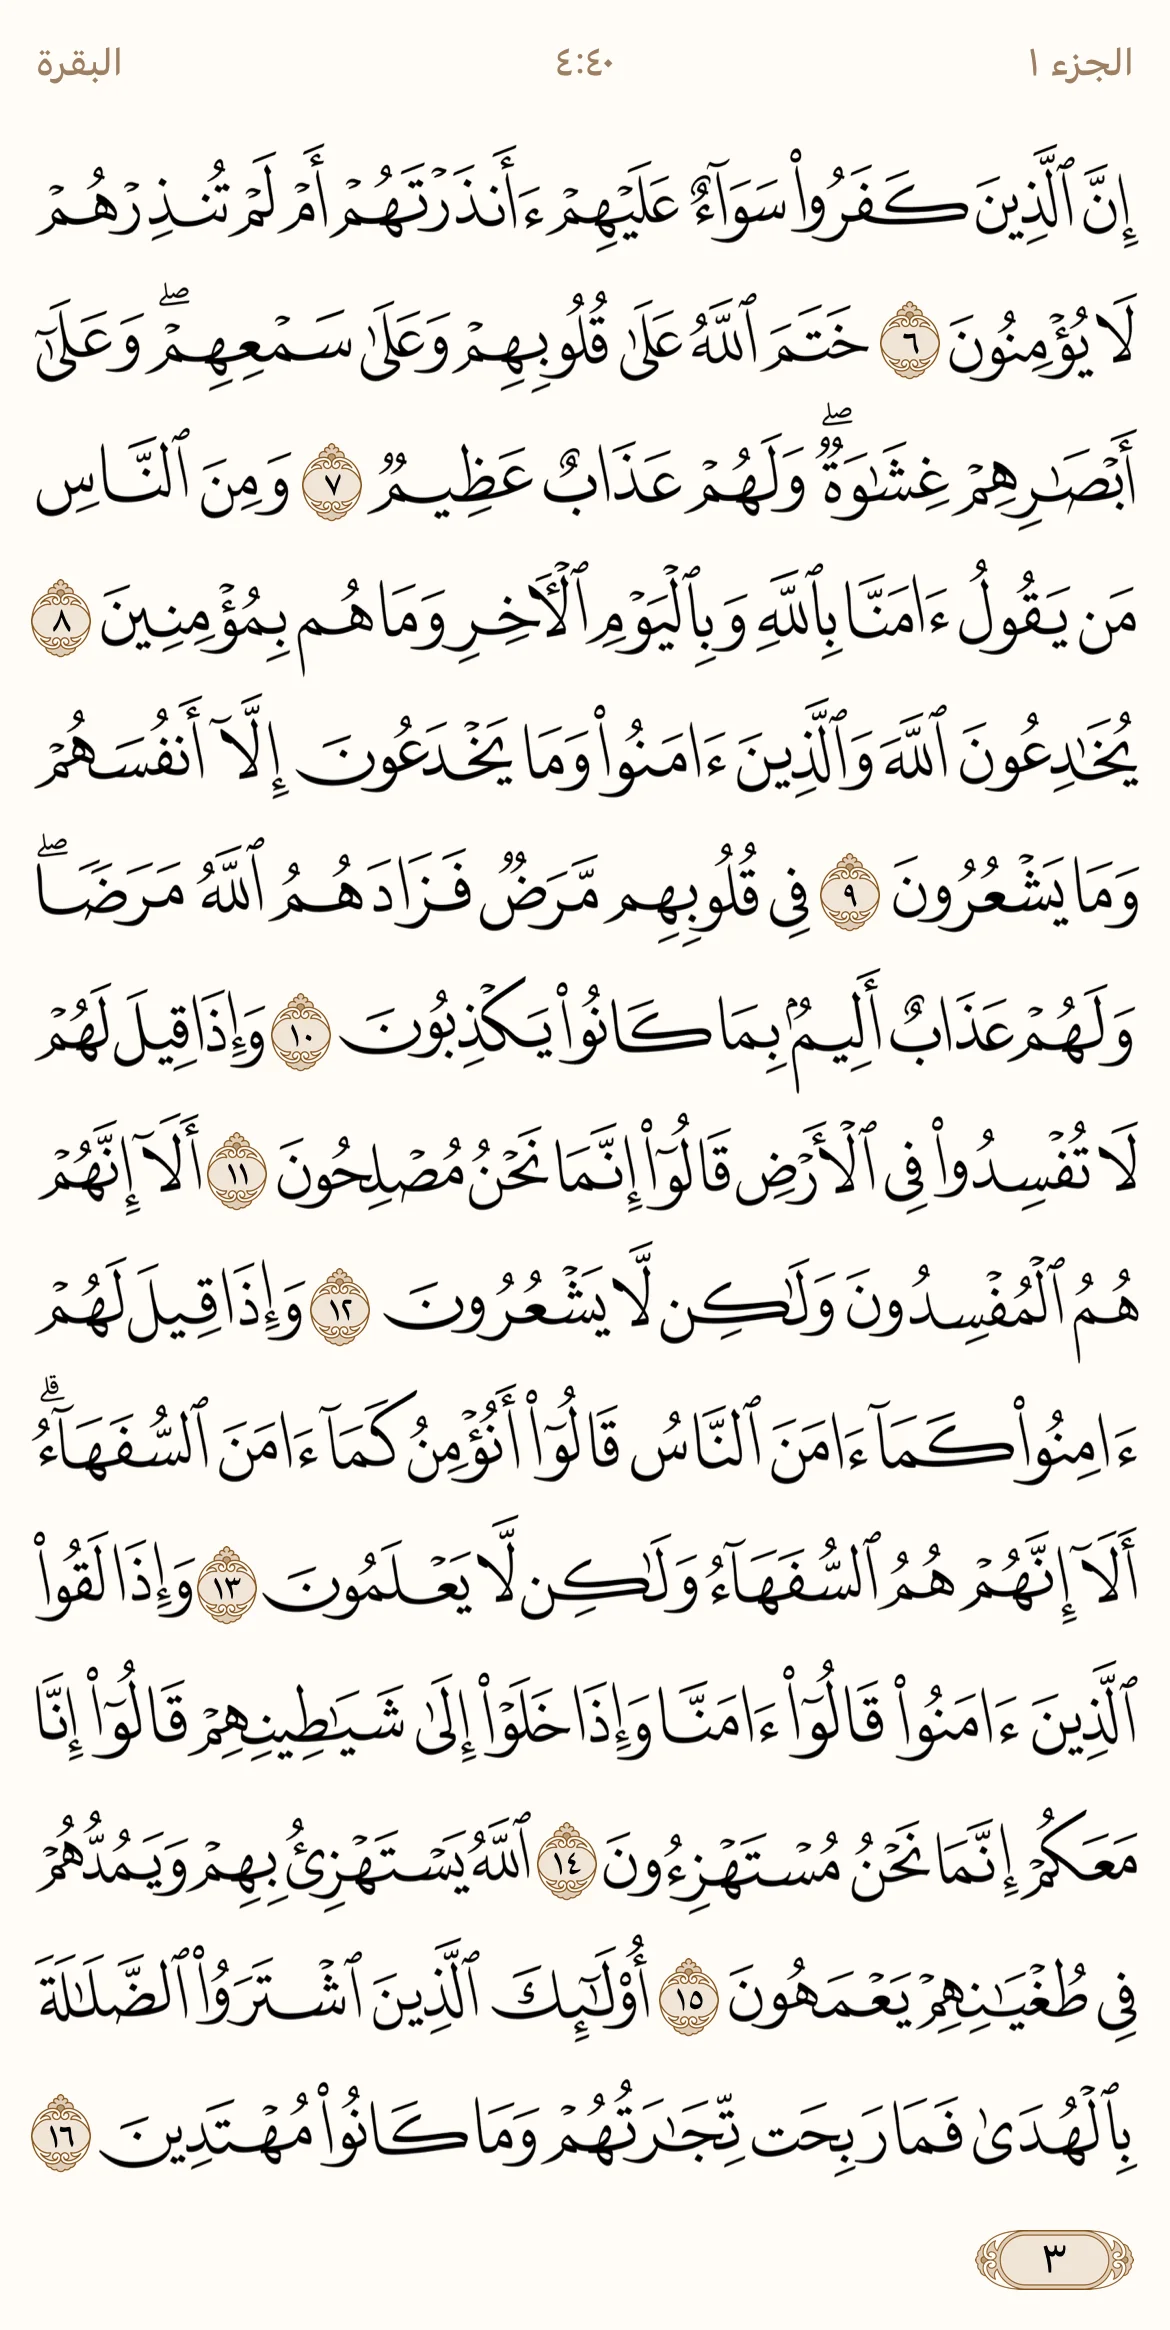 الجزء ١
٤:٤٠
البقرة
إِنَّ ٱلَّذِينَ كَفَرُوا۟ سَوَآءٌ عَلَيْهِمْ ءَأَنذَرْتَهُمْ أَمْ لَمْ تُنذِرْهُمْ
لَا يُؤْمِنُونَ ٦ خَتَمَ ٱللَّهُ عَلَىٰ قُلُوبِهِمْ وَعَلَىٰ سَمْعِهِمْ ۖ وَعَلَىٰٓ
أَبْصَـٰرِهِمْ غِشَـٰوَةٌ ۖ وَلَهُمْ عَذَابٌ عَظِيمٌ ٧ وَمِنَ ٱلنَّاسِ
مَن يَقُولُ ءَامَنَّا بِٱللَّهِ وَبِٱلْيَوْمِ ٱلْـَٔاخِرِ وَمَا هُم بِمُؤْمِنِينَ ٨
يُخَـٰدِعُونَ ٱللَّهَ وَٱلَّذِينَ ءَامَنُوا۟ وَمَا يَخْدَعُونَ إِلَّآ أَنفُسَهُمْ
وَمَا يَشْعُرُونَ ٩ فِى قُلُوبِهِم مَّرَضٌ فَزَادَهُمُ ٱللَّهُ مَرَضًا ۖ
وَلَهُمْ عَذَابٌ أَلِيمٌۢ بِمَا كَانُوا۟ يَكْذِبُونَ ١٠ وَإِذَا قِيلَ لَهُمْ
لَا تُفْسِدُوا۟ فِى ٱلْأَرْضِ قَالُوٓا۟ إِنَّمَا نَحْنُ مُصْلِحُونَ ١١ أَلَآ إِنَّهُمْ
هُمُ ٱلْمُفْسِدُونَ وَلَـٰكِن لَّا يَشْعُرُونَ ١٢ وَإِذَا قِيلَ لَهُمْ
ءَامِنُوا۟ كَمَآ ءَامَنَ ٱلنَّاسُ قَالُوٓا۟ أَنُؤْمِنُ كَمَآ ءَامَنَ ٱلسُّفَهَآءُ ۗ
أَلَآ إِنَّهُمْ هُمُ ٱلسُّفَهَآءُ وَلَـٰكِن لَّا يَعْلَمُونَ ١٣ وَإِذَا لَقُوا۟
ٱلَّذِينَ ءَامَنُوا۟ قَالُوٓا۟ ءَامَنَّا وَإِذَا خَلَوْا۟ إِلَىٰ شَيَـٰطِينِهِمْ قَالُوٓا۟ إِنَّا
مَعَكُمْ إِنَّمَا نَحْنُ مُسْتَهْزِءُونَ ١٤ ٱللَّهُ يَسْتَهْزِئُ بِهِمْ وَيَمُدُّهُمْ
فِى طُغْيَـٰنِهِمْ يَعْمَهُونَ ١٥ أُو۟لَـٰٓئِكَ ٱلَّذِينَ ٱشْتَرَوُا۟ ٱلضَّلَـٰلَةَ
بِٱلْهُدَىٰ فَمَا رَبِحَت تِّجَـٰرَتُهُمْ وَمَا كَانُوا۟ مُهْتَدِينَ ١٦
٣